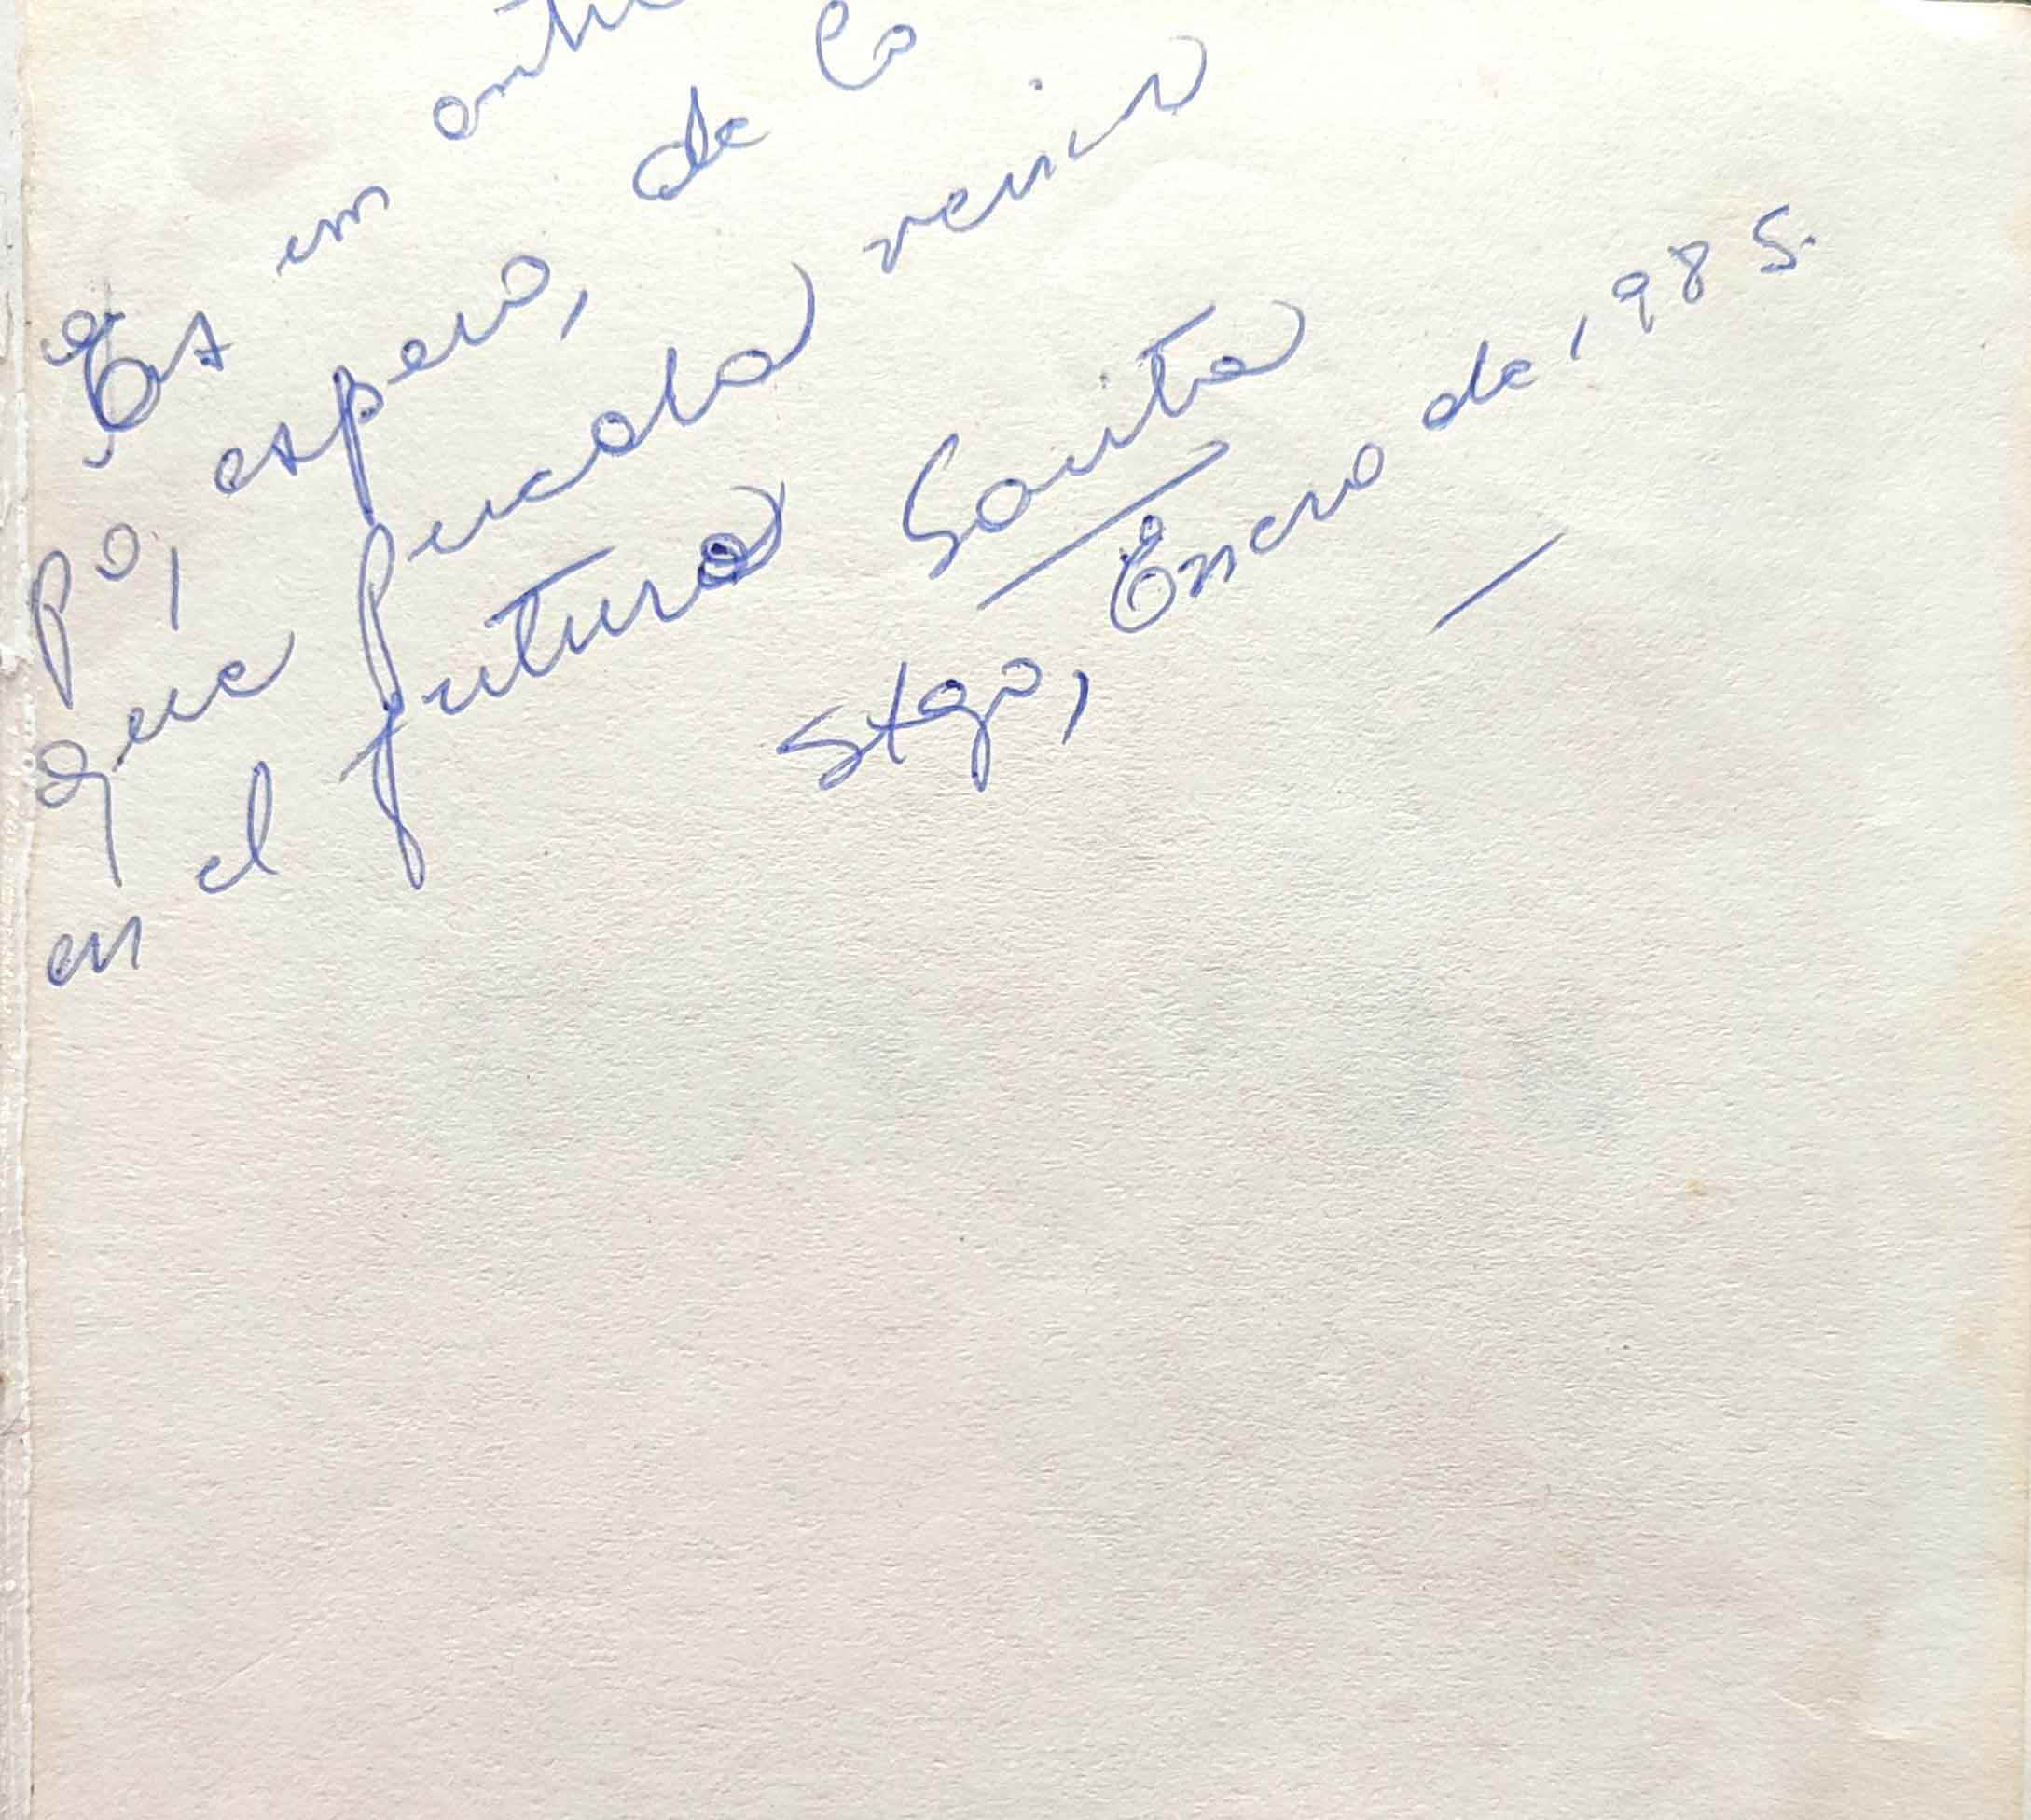 Es un anti
po, espero, de lo
que pueda venir
en el futuro
Sarita
Stgo, Enero de 1985.